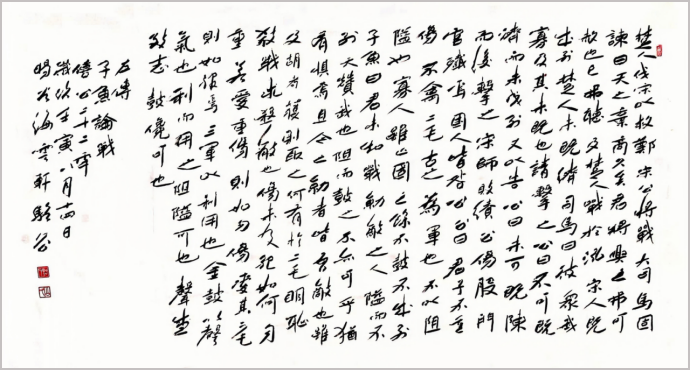 楚人伐宋以救鄭宋公將戰大司馬固
諫曰天之棄商久矣君將興之弗可
赦也已弗聽及楚人戰於泓宋人既
成列楚人未既濟司馬曰彼眾我
寡及其未既也請擊之公曰不可既
濟而未成列又以告公曰未可既陳
而後擊之宋師敗績公傷股門
官殲焉國人皆咎公公曰君子不重
傷不禽二毛古之為軍也不以阻
隘也寡人雖亡國之餘不鼓不成列
子魚曰君未知戰勍敵之人隘而不
列天贊我也阻而鼓之不亦可乎猶
有懼焉且今之勍者皆吾敵也雖
及胡耇獲則取之何有於二毛明恥
教戰求殺敵也傷未及死如何勿
重若愛重傷則如勿傷愛其二毛
則如服焉三軍以利用也金鼓以聲
氣也利而用之阻隘可也聲盛
致志鼓儳可也
左傳
子魚論戰
僖公二十二年
歲次壬寅八月十四日
海雲軒